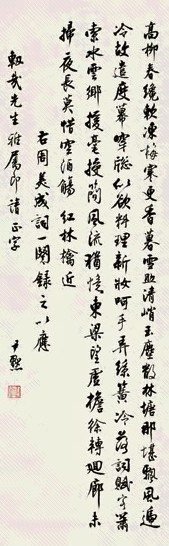 高柳春纔軟凍梅寒更香暮雪助清峭玉塵散林塘那堪飄風遞
冷故遣度幕穿牕似欲料理新妝呵手弄絲簧冷落詞賦客蕭
索水雲鄉援毫授簡風流猶憶東梁望虛檐徐轉迴廊未
掃夜長莫惜空酒觴 紅林擒近
右周美成詞一闋錄之以應
哉先生雅屬即請正字
尹默